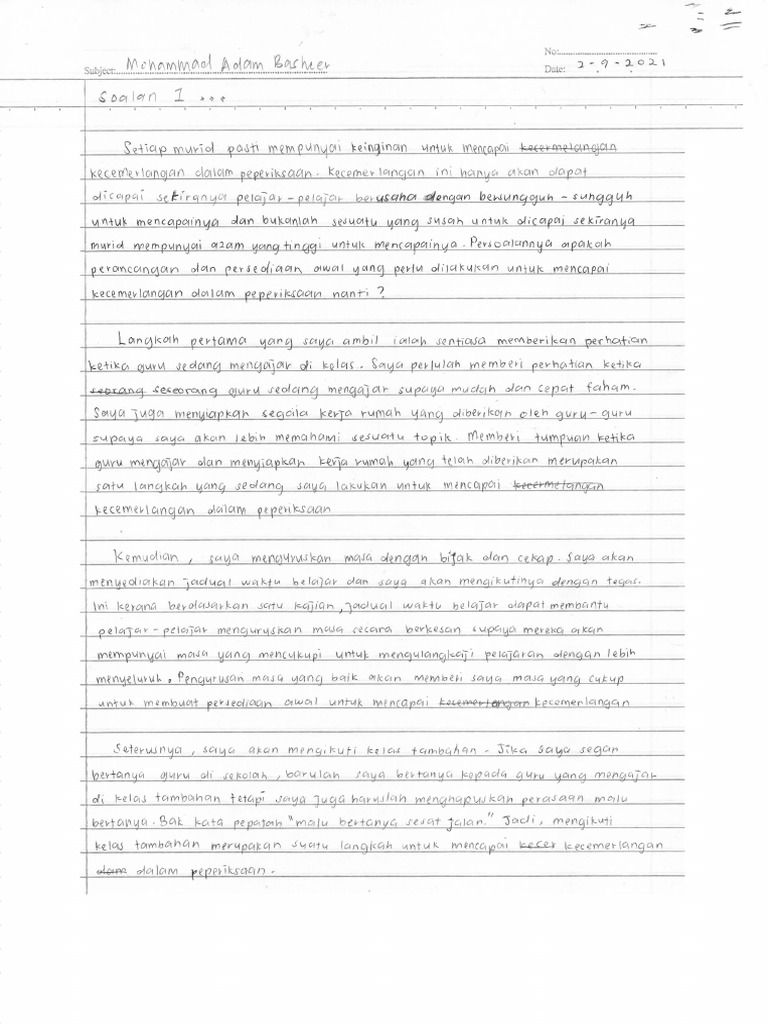 No:
Subject: Mohammad Adam Basheer
Date: 2-9-2021
Soalan 1 ...
Setiap murid pasti mempunyai keinginan untuk mencapai kecermelangan
kecemerlangan dalam peperiksaan. Kecemerlangan ini hanya akan dapat
dicapai sekiranya pelajar-pelajar berusaha dengan bersungguh-sungguh
untuk mencapainya dan bukanlah sesuatu yang susah untuk dicapai sekiranya
murid mempunyai azam yang tinggi untuk mencapainya. Persoalannya apakah
perancangan dan persediaan awal yang perlu dilakukan untuk mencapai
kecemerlangan dalam peperiksaan nanti?
Langkah pertama yang saya ambil ialah sentiasa memberikan perhatian
ketika guru sedang mengajar di kelas. Saya perlulah memberi perhatian ketika
seorang seseorang guru sedang mengajar supaya mudah dan cepat faham.
Saya juga menyiapkan segala kerja rumah yang diberikan oleh guru-guru
supaya saya akan lebih memahami sesuatu topik. Memberi tumpuan ketika
guru mengajar dan menyiapkan kerja rumah yang telah diberikan merupakan
satu langkah yang sedang saya lakukan untuk mencapai kecermelangan
kecemerlangan dalam peperiksaan
Kemudian, saya menguruskan masa dengan bijak dan cekap. Saya akan
menyediakan jadual waktu belajar dan saya akan mengikutinya dengan tegas.
Ini kerana berdasarkan satu kajian, jadual waktu belajar dapat membantu
pelajar-pelajar menguruskan masa cecara berkesan supaya mereka akan
mempunyai masa yang mencukupi untuk mengulangkaji pelajaran dengan lebih
menyeluruh. Pengurusan masa yang baik akan memberi saya masa yang cukup
untuk membuat persediaan awal untuk mencapai kecemerlangan kecemerlangan
Seterusnya, saya akan mengikuti kelas tambahan. Jika saya segan
bertanya guru di sekolah, barulah saya bertanya kepada guru yang mengajar
di kelas tambahan tetapi saya juga haruslah menghapuskan perasaan malu
bertanya. Bak kata pepatah "malu bertanya sesat jalan." Jadi, mengikuti
kelas tambahan merupakan suatu langkah untuk mencapai kecer kecemerlangan
dam dalam peperiksaan.